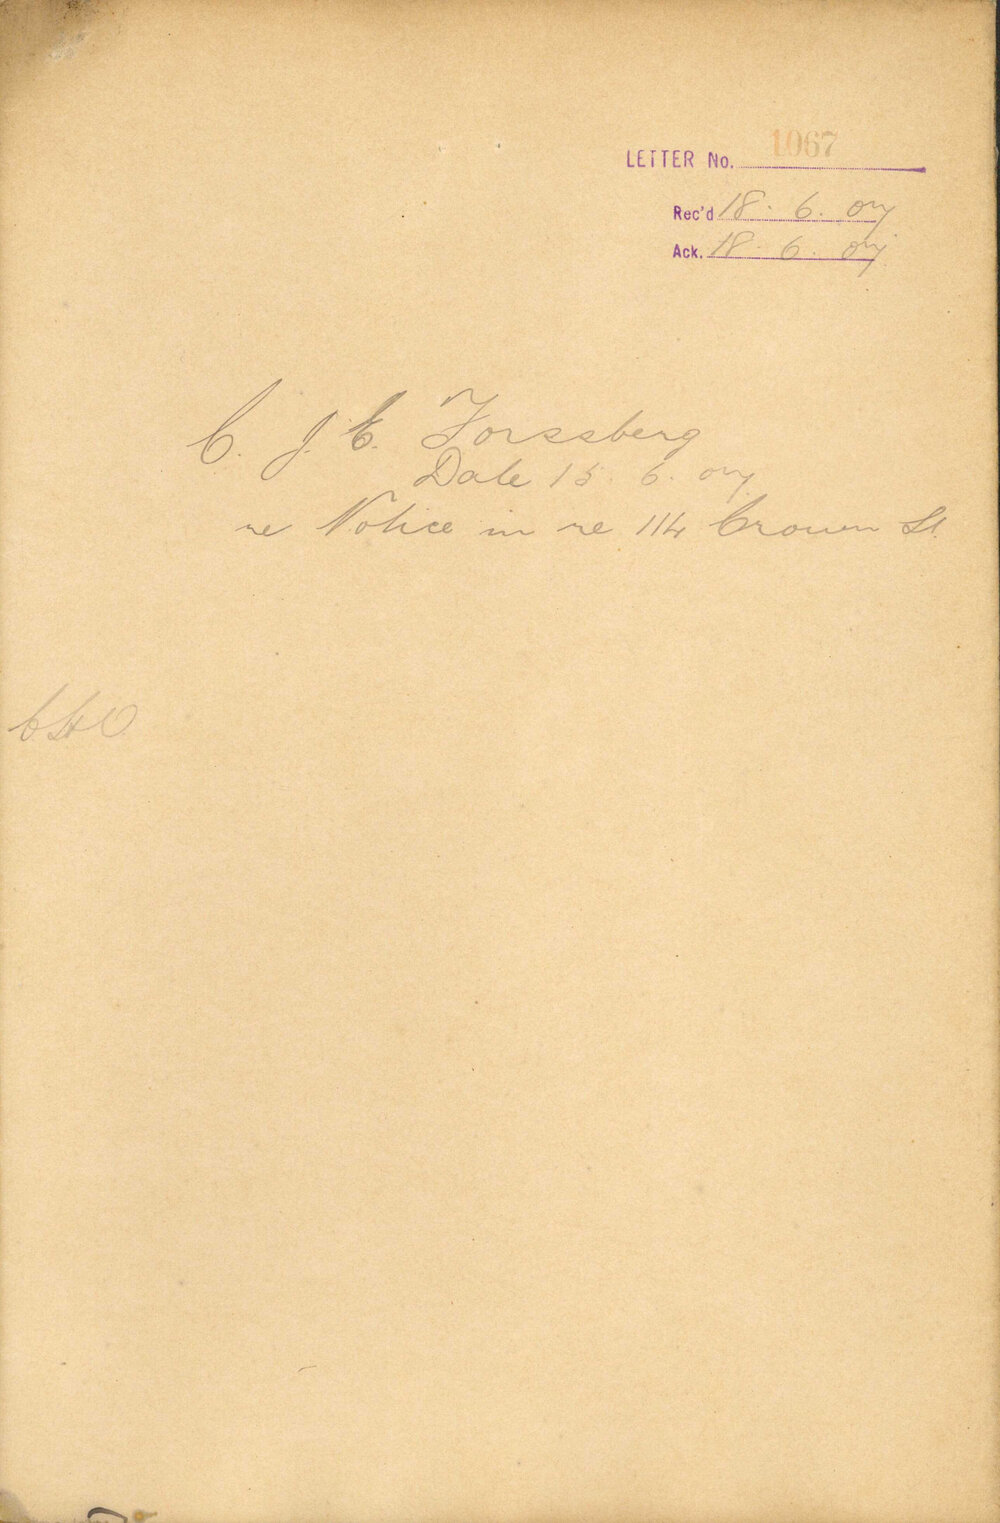 LETTER No. 1067
Rec'd 18. 6. 07
Ack. 18. 6. 07
C. J. E. Forssberg
Date 15. 6. 07
re Notice in re 114 Crown St.
CHO